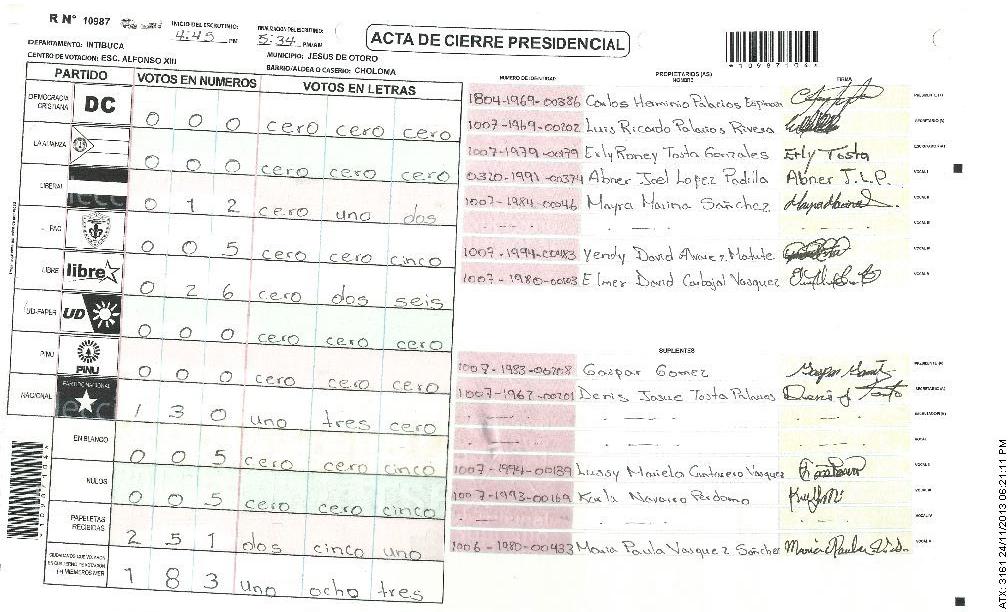 R N° 10987
INICIO DEL ESCRUTINIO: 4:45 PM
FINALIZACION DEL ESCRUTINIO: 5:34 PM/AM
ACTA DE CIERRE PRESIDENCIAL
DEPARTAMENTO: INTIBUCA
MUNICIPIO: JESUS DE OTORO
CENTRO DE VOTACION: ESC. ALFONSO XIII
BARRIO/ALDEA O CASERIO: CHOLOMA
PARTIDO VOTOS EN NUMEROS VOTOS EN LETRAS
DEMOCRACIA CRISTIANA DC 0 0 0 cero cero cero
LA ALIANZA 0 0 0 cero cero cero
LIBERAL 0 1 2 cero uno dos
PAC 0 0 5 cero cero cinco
LIBRE libre 0 2 6 cero dos seis
UD-FAPER UD 0 0 0 cero cero cero
PINU PINU 0 0 0 cero cero cero
NACIONAL PARTIDO NACIONAL 1 3 0 uno tres cero
EN BLANCO 0 0 5 cero cero cinco
NULOS 0 0 5 cero cero cinco
PAPELETAS RECIBIDAS 2 5 1 dos cinco uno
1 8 3 uno ocho tres
NUMERO DE IDENTIDAD PROPIETARIOS (AS) NOMBRE FIRMA
1804-1969-00386 Carlos Herminio Palacios Espinoza
1007-1969-00202 Luis Ricardo Palacios Rivera
1007-1979-00179 Erly Roney Tosta Gonzales Erly Tosta
0320-1991-00374 Abner Joel Lopez Padilla Abner J.L.P.
1007-1984-00046 Mayra Marina Sanchez
1007-1994-00483 Yendy David Alvarez Matute
1007-1980-00103 Elmer David Carbajal Vasquez
SUPLENTES
1007-1983-00208 Gaspar Gomez
1007-1967-00201 Denis Josue Tosta Palacios
1007-1994-00189 Lussy Mariela Cantarero Vasquez
1007-1993-00169 Karla Navarro Perdomo
1006-1980-00433 Maria Paula Vasquez Sanchez
ATX: 3161 24/11/2013 06:21:11 PM